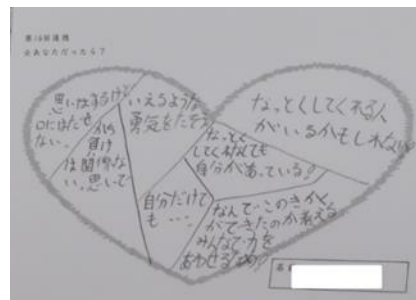 第18回道徳
☆あなただったら？
思いはするけど
口にはだせ
ない。
から
負け
は関係な
い。思いで
いえるような
勇気をだそう
なっとくしてくれる人
がいるかもしれない
なっとく
してくれなくても
自分があっている!
自分だけで
も…。
なんで このきかく
ができたのか考える
みんなで力を
あわせるため!
名